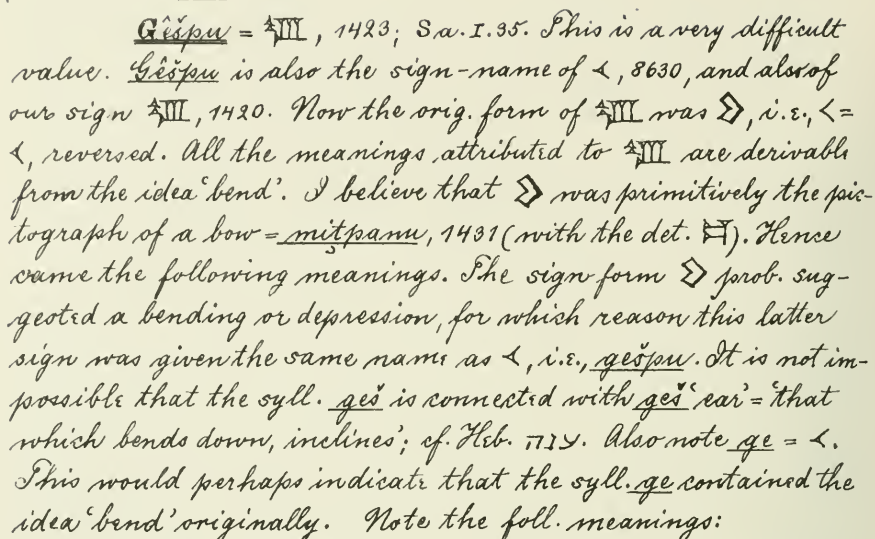 Gêšpu = 𒊒, 1423; Sa. I. 35. This is a very difficult
value. Gêšpu is also the sign-name of 𒀹, 8630, and also of
our sign 𒊒, 1420. Now the orig. form of 𒊒 was , i.e., < =
𒀹, reversed. All the meanings attributed to 𒊒 are derivable
from the idea ‘bend’. I believe that was primitively the pic-
tograph of a bow = miṭpanu, 1431 (with the det. 𒄑). Hence
came the following meanings. The sign form prob. sug-
gested a bending or depression, for which reason this latter
sign was given the same name as 𒀹, i.e., gešpu. It is not im-
possible that the syll. geš is connected with geš ‘ear’ = ‘that
which bends down, inclines’; cf. Heb. ענה. Also note ge = 𒀹.
This would perhaps indicate that the syll. ge contained the
idea ‘bend’ originally. Note the foll. meanings: